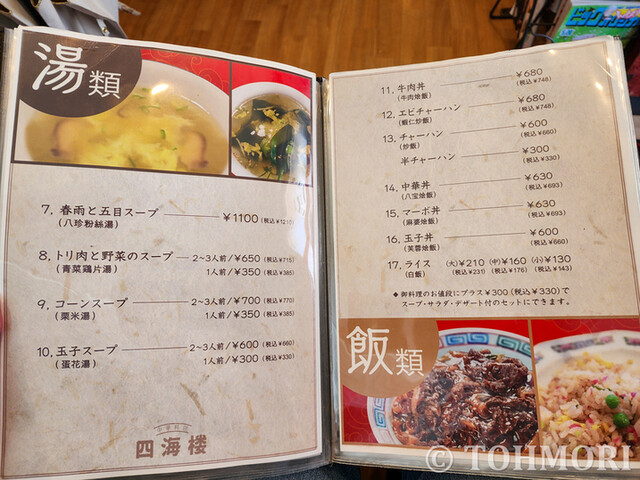 湯類
7. 春雨と五目スープ ¥1100(税込¥1210)
(八珍粉絲湯)
8. トリ肉と野菜のスープ 2~3人前/¥650(税込¥715)
(青菜鶏片湯) 1人前/¥350(税込¥385)
9. コーンスープ 2~3人前/¥700(税込¥770)
(粟米湯) 1人前/¥350(税込¥385)
10. 玉子スープ 2~3人前/¥600(税込¥660)
(蛋花湯) 1人前/¥300(税込¥330)
四海楼
11. 牛肉丼 ¥680
(牛肉燴飯) (税込¥748)
12. エビチャーハン ¥680
(蝦仁炒飯) (税込¥748)
13. チャーハン ¥600
(炒飯) (税込¥660)
半チャーハン ¥300
(税込¥330)
14. 中華丼 ¥630
(八宝燴飯) (税込¥693)
15. マーボ丼 ¥630
(麻婆燴飯) (税込¥693)
16. 玉子丼 ¥600
(芙蓉燴飯) (税込¥660)
17. ライス (大)¥210 (中)¥160 (小)¥130
(白飯) (税込¥231) (税込¥176) (税込¥143)
◆御料理のお値段にプラス¥300(税込¥330)で
スープ・サラダ・デザート付のセットにできます。
飯類
© TOHMORI